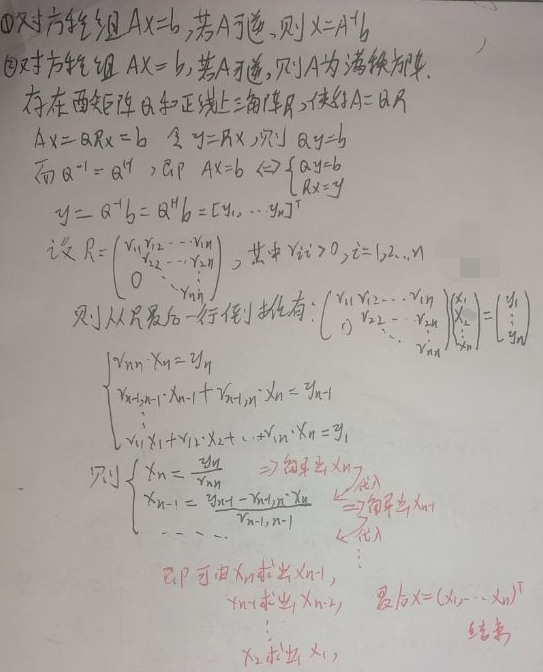 ①对方程组 Ax=b,若A可逆,则 x=A⁻¹b
②对方程组 AX=b,若A可逆,则A为满秩方阵.
存在酉矩阵Q和正线上三角阵R,使得A=QR
Ax=QRx=b 令 y=Rx,则 Qy=b
而 Q⁻¹=Qᴴ,即 Ax=b ⇔ { Qy=b
Rx=y
y=Q⁻¹b=Qᴴb=[y₁,…yₙ]ᵀ
设 R=(r₁₁ r₁₂ … r₁ₙ
r₂₂ … r₂ₙ
0 ⋱ ⋮
rₙₙ), 其中 rᵢᵢ>0, i=1,2…n
则从R最后一行倒推有: (r₁₁ r₁₂ … r₁ₙ
r₂₂ … r₂ₙ
⋱ ⋮
rₙₙ)(x₁
x₂
⋮
xₙ)=(y₁
⋮
yₙ)
{ rₙₙ·xₙ=yₙ
rₙ₋₁,ₙ₋₁·xₙ₋₁+rₙ₋₁,ₙ·xₙ=yₙ₋₁
⋮
r₁₁x₁+r₁₂·x₂+…+r₁ₙ·xₙ=y₁
则 { xₙ=yₙ/rₙₙ ⇒解出xₙ
代入
xₙ₋₁=(yₙ₋₁-rₙ₋₁,ₙ·xₙ)/rₙ₋₁,ₙ₋₁ ⇒解出xₙ₋₁
…… 代入
⋮
即可由xₙ求出xₙ₋₁,
xₙ₋₁求出xₙ₋₂, 最后x=(x₁,…xₙ)ᵀ
⋮ 结束
x₂求出x₁,